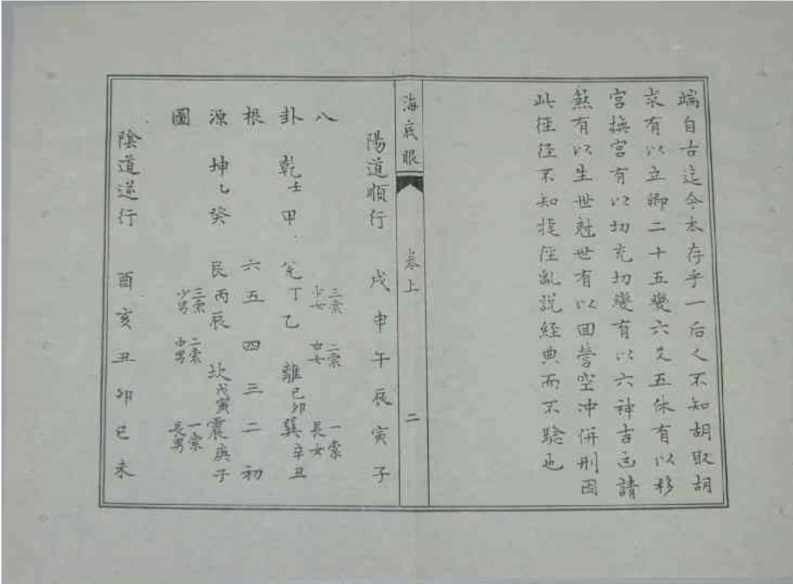 端自古迄今本存乎一后人不知胡取胡
求有以立卿二十五變六爻五休有以移
宮換宮有以切充切變有以六神吉凶請
煞有以生世尅世有以四營空沖併刑因
此徑徑不知捷徑亂說經典而不驗也
海底眼 卷上 二
陽道順行 戌申午辰寅子
八 三索少女 二索中女 一索長女
卦 乾壬甲 兌丁乙 離己卯 巽辛丑
根 六五四三二初
源 坤乙癸 艮丙辰 坎戊寅 震庚子
圖 三索少男 二索中男 一索長男
陰道逆行 酉亥丑卯巳未